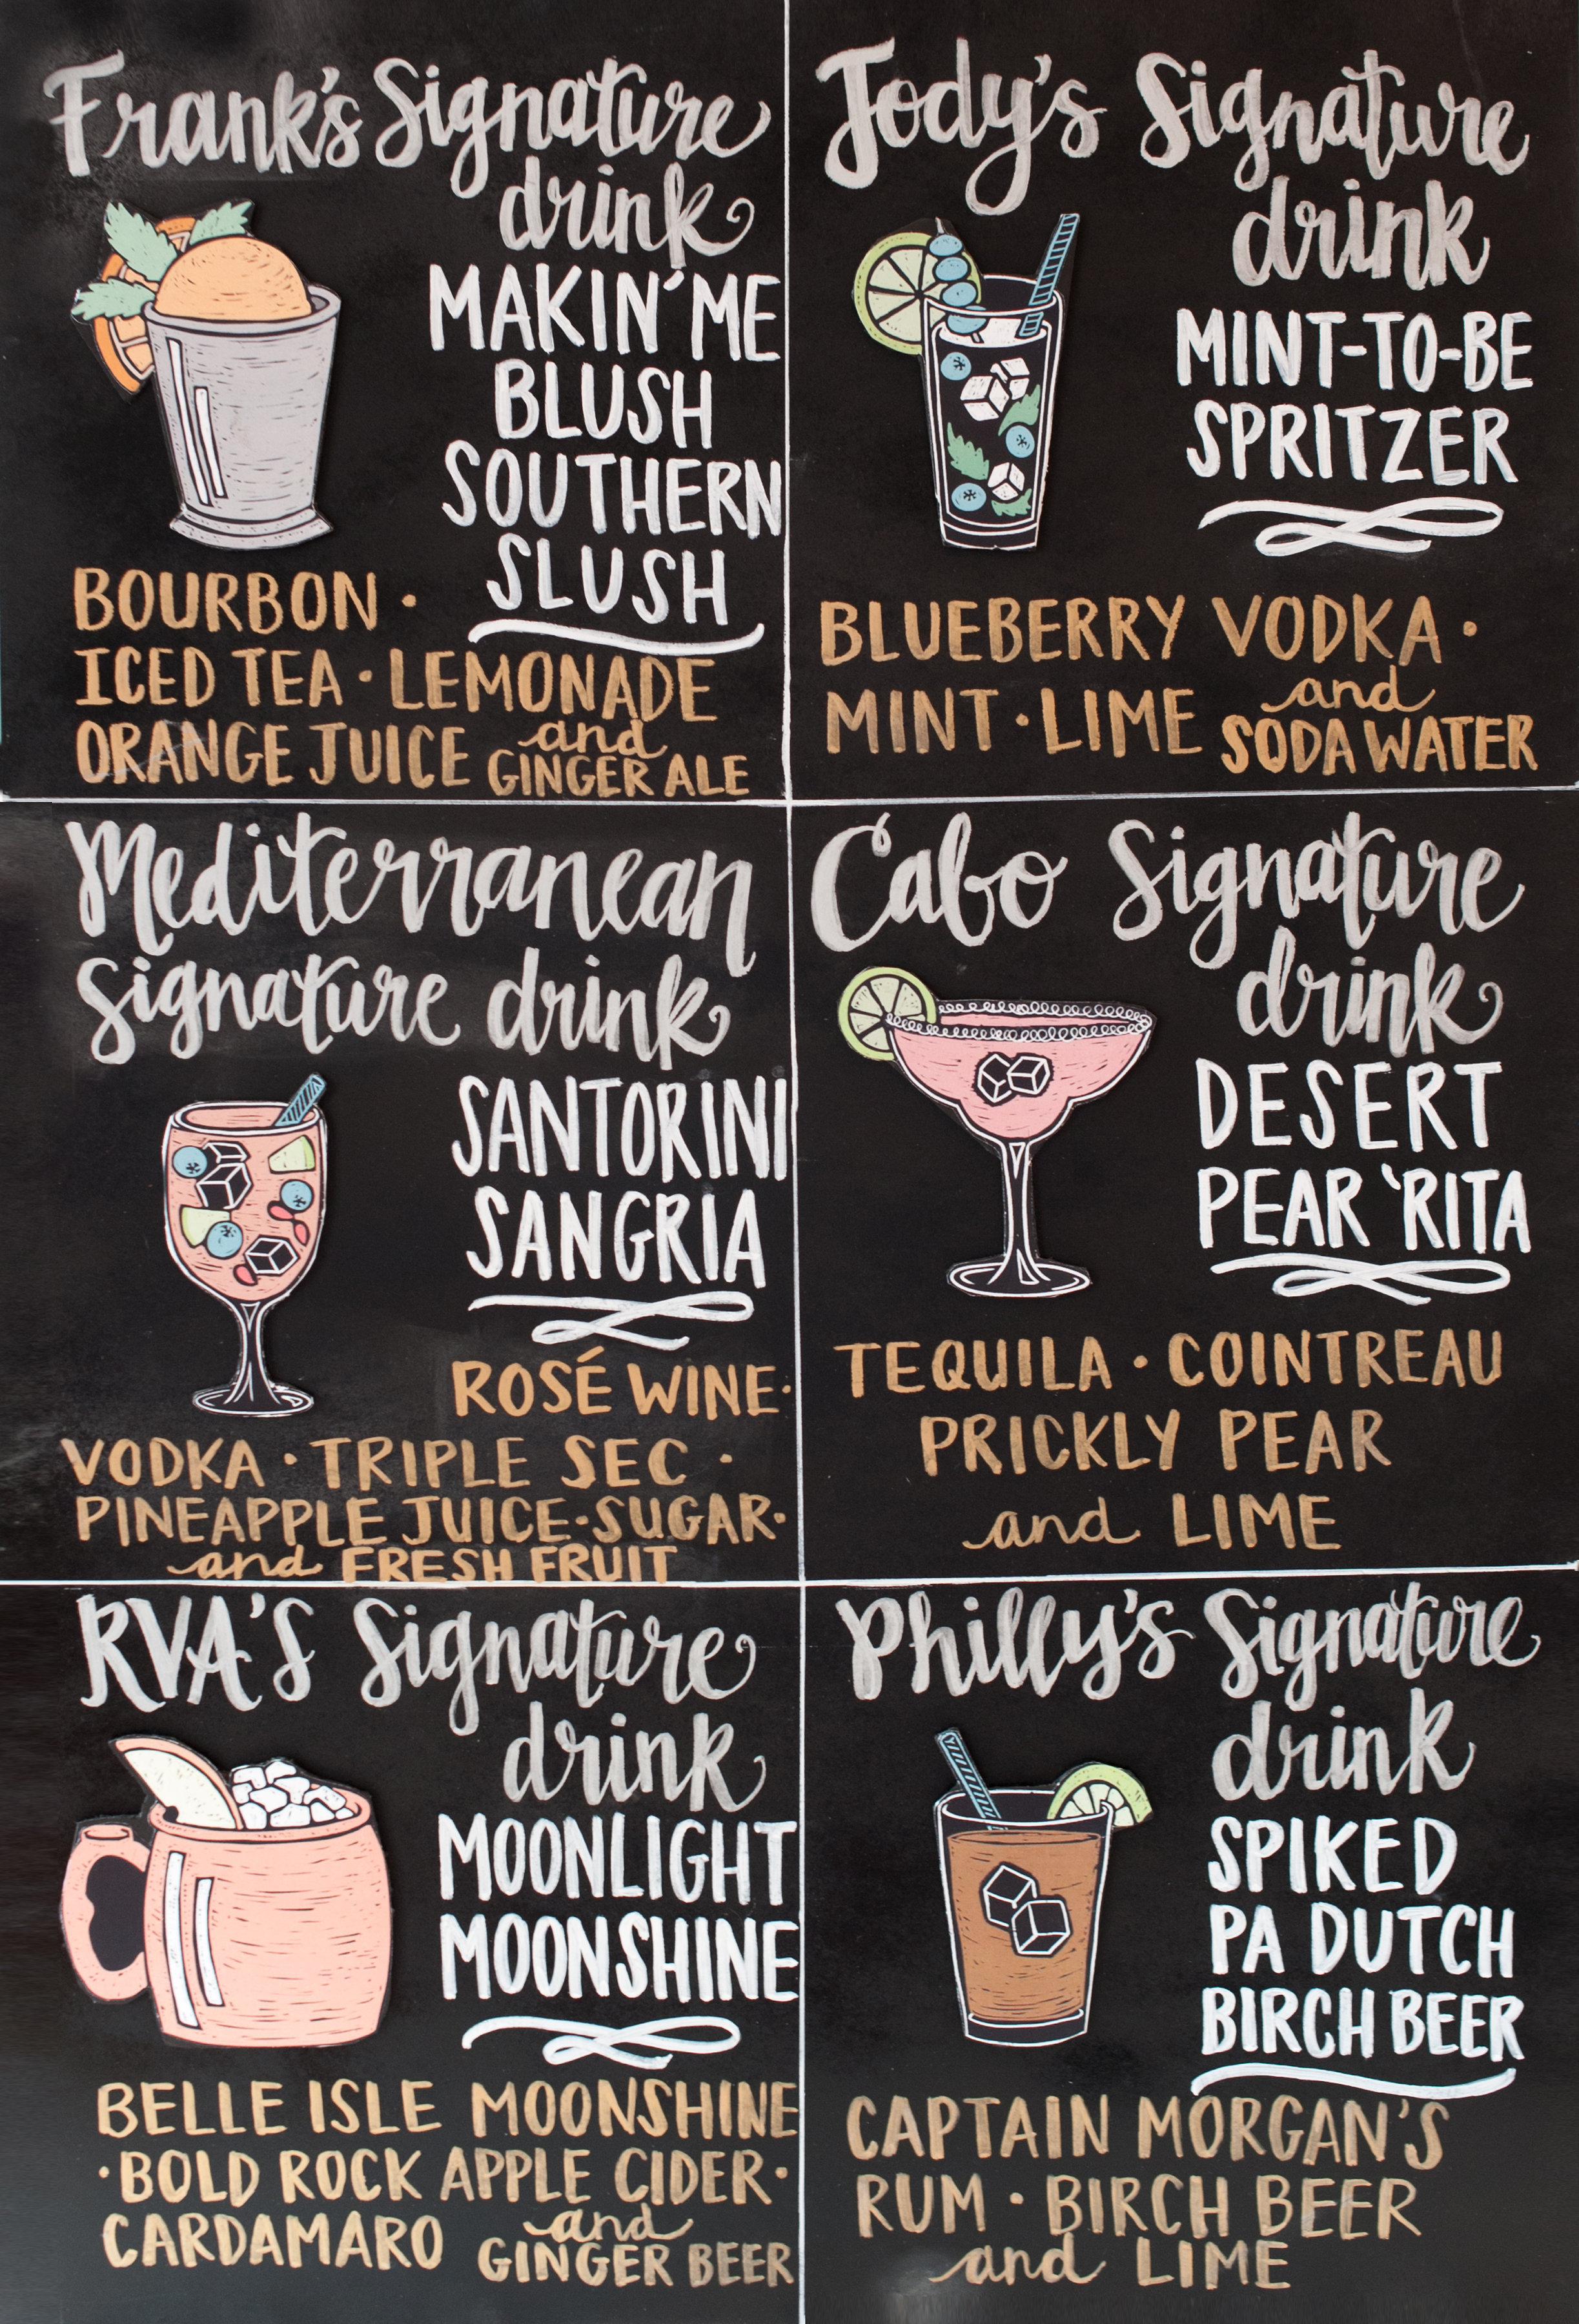 Frank's Signature
drink
MAKIN' ME
BLUSH
SOUTHERN
SLUSH
BOURBON ·
ICED TEA · LEMONADE
ORANGE JUICE and
GINGER ALE
Jody's Signature
drink
MINT-TO-BE
SPRITZER
BLUEBERRY VODKA ·
MINT · LIME and
SODA WATER
Mediterranean
Signature drink
SANTORINI
SANGRIA
ROSÉ WINE ·
VODKA · TRIPLE SEC ·
PINEAPPLE JUICE · SUGAR ·
and FRESH FRUIT
Cabo Signature
drink
DESERT
PEAR 'RITA
TEQUILA · COINTREAU
PRICKLY PEAR
and LIME
RVA'S Signature
drink
MOONLIGHT
MOONSHINE
BELLE ISLE MOONSHINE
· BOLD ROCK APPLE CIDER ·
CARDAMARO and
GINGER BEER
Philly's Signature
drink
SPIKED
PA DUTCH
BIRCH BEER
CAPTAIN MORGAN'S
RUM · BIRCH BEER
and LIME